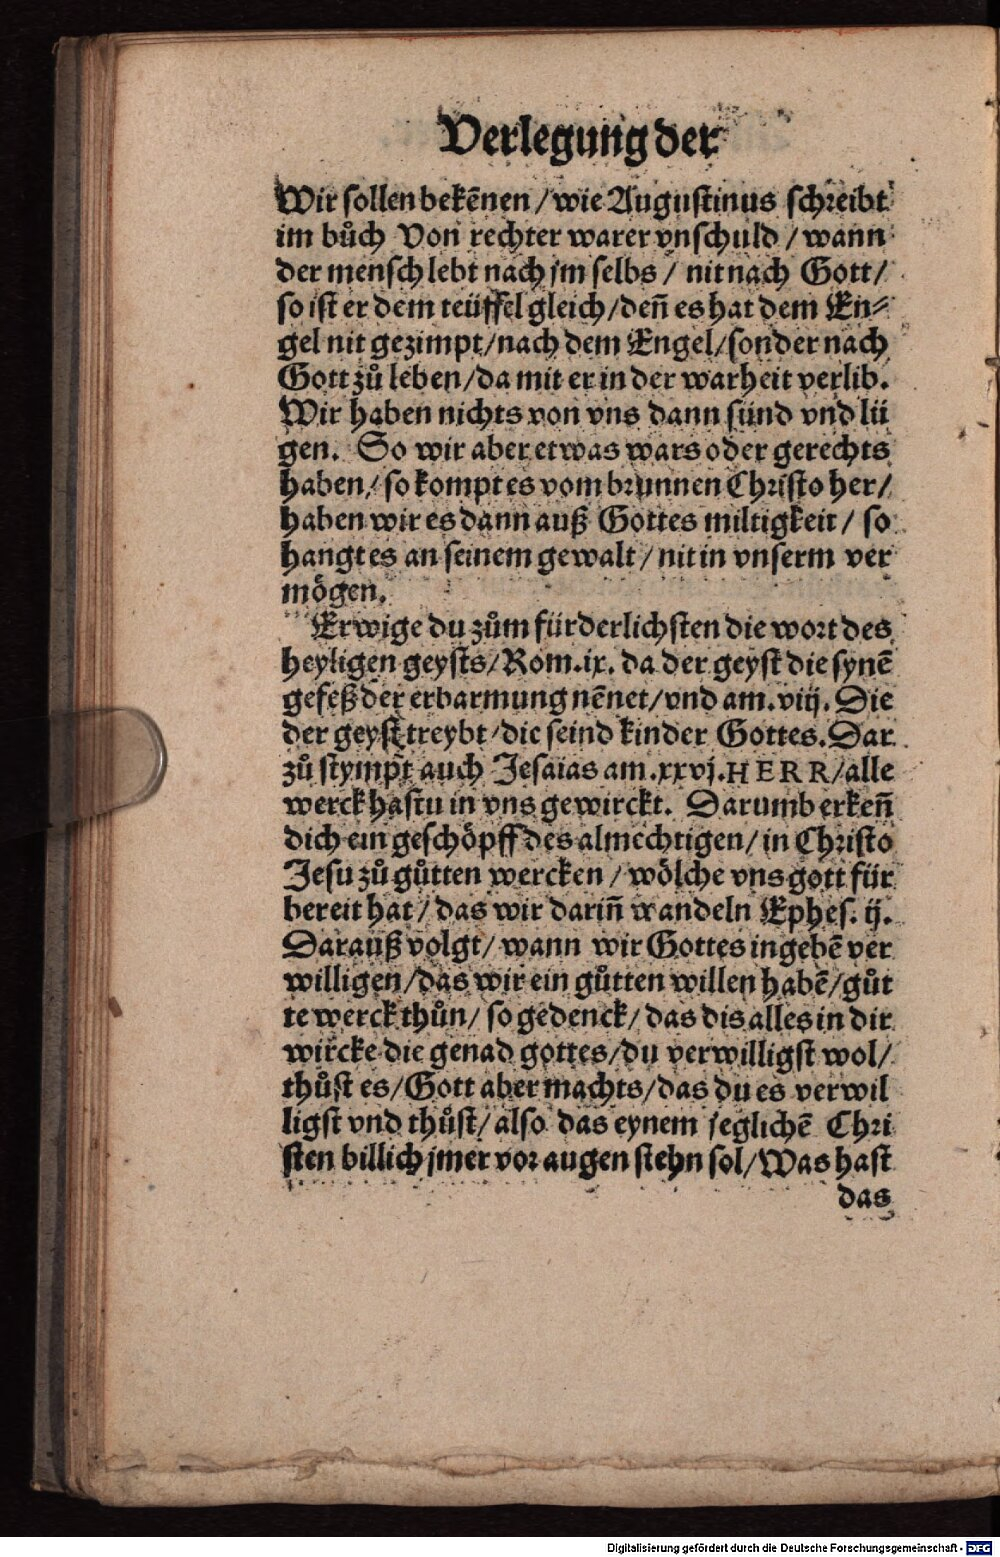 Verlegung der
Wir sollen bekēnen / wie Augustinus schreibt
im bůch Von rechter warer vnschuld / wann
der mensch lebt nach jm selbs / nit nach Gott /
so ist er dem teüffel gleich / deñ es hat dem En⸗
gel nit gezimpt / nach dem Engel / sonder nach
Gott zů leben / da mit er in der warheit verlib.
Wir haben nichts von vns dann sünd vnd lü
gen. So wir aber etwas wars oder gerechts
haben / so kompt es vom brunnen Christo her /
haben wir es dann auß Gottes miltigkeit / so
hangt es an seinem gewalt / nit in vnserm ver
mögen.
Erwige du zům fürderlichsten die wort des
heyligen geysts / Rom. ix. da der geyst die synē
gefeß der erbarmung nēnet / vnd am. viij. Die
der geyst treybt / die seind kinder Gottes. Dar
zů stympt auch Jesaias am. xxvj. HERR / alle
werck hastu in vns gewirckt. Darumb erkeñ
dich ein geschöpff des almechtigen / in Christo
Jesu zů gůtten wercken / wölche vns gott für
bereit hat / das wir dariñ wandeln Ephes. ij.
Darauß volgt / wann wir Gottes ingebē ver
willigen / das wir ein gůtten willen habē / gůt
te werck thůn / so gedenck / das dis alles in dir
wircke die genad gottes / du verwilligst wol /
thůst es / Gott aber machts / das du es verwil
ligst vnd thůst / also das eynem jeglichē Chri
sten billich jmer vor augen stehn sol / Was hast
das
Digitalisierung gefördert durch die Deutsche Forschungsgemeinschaft - DFG